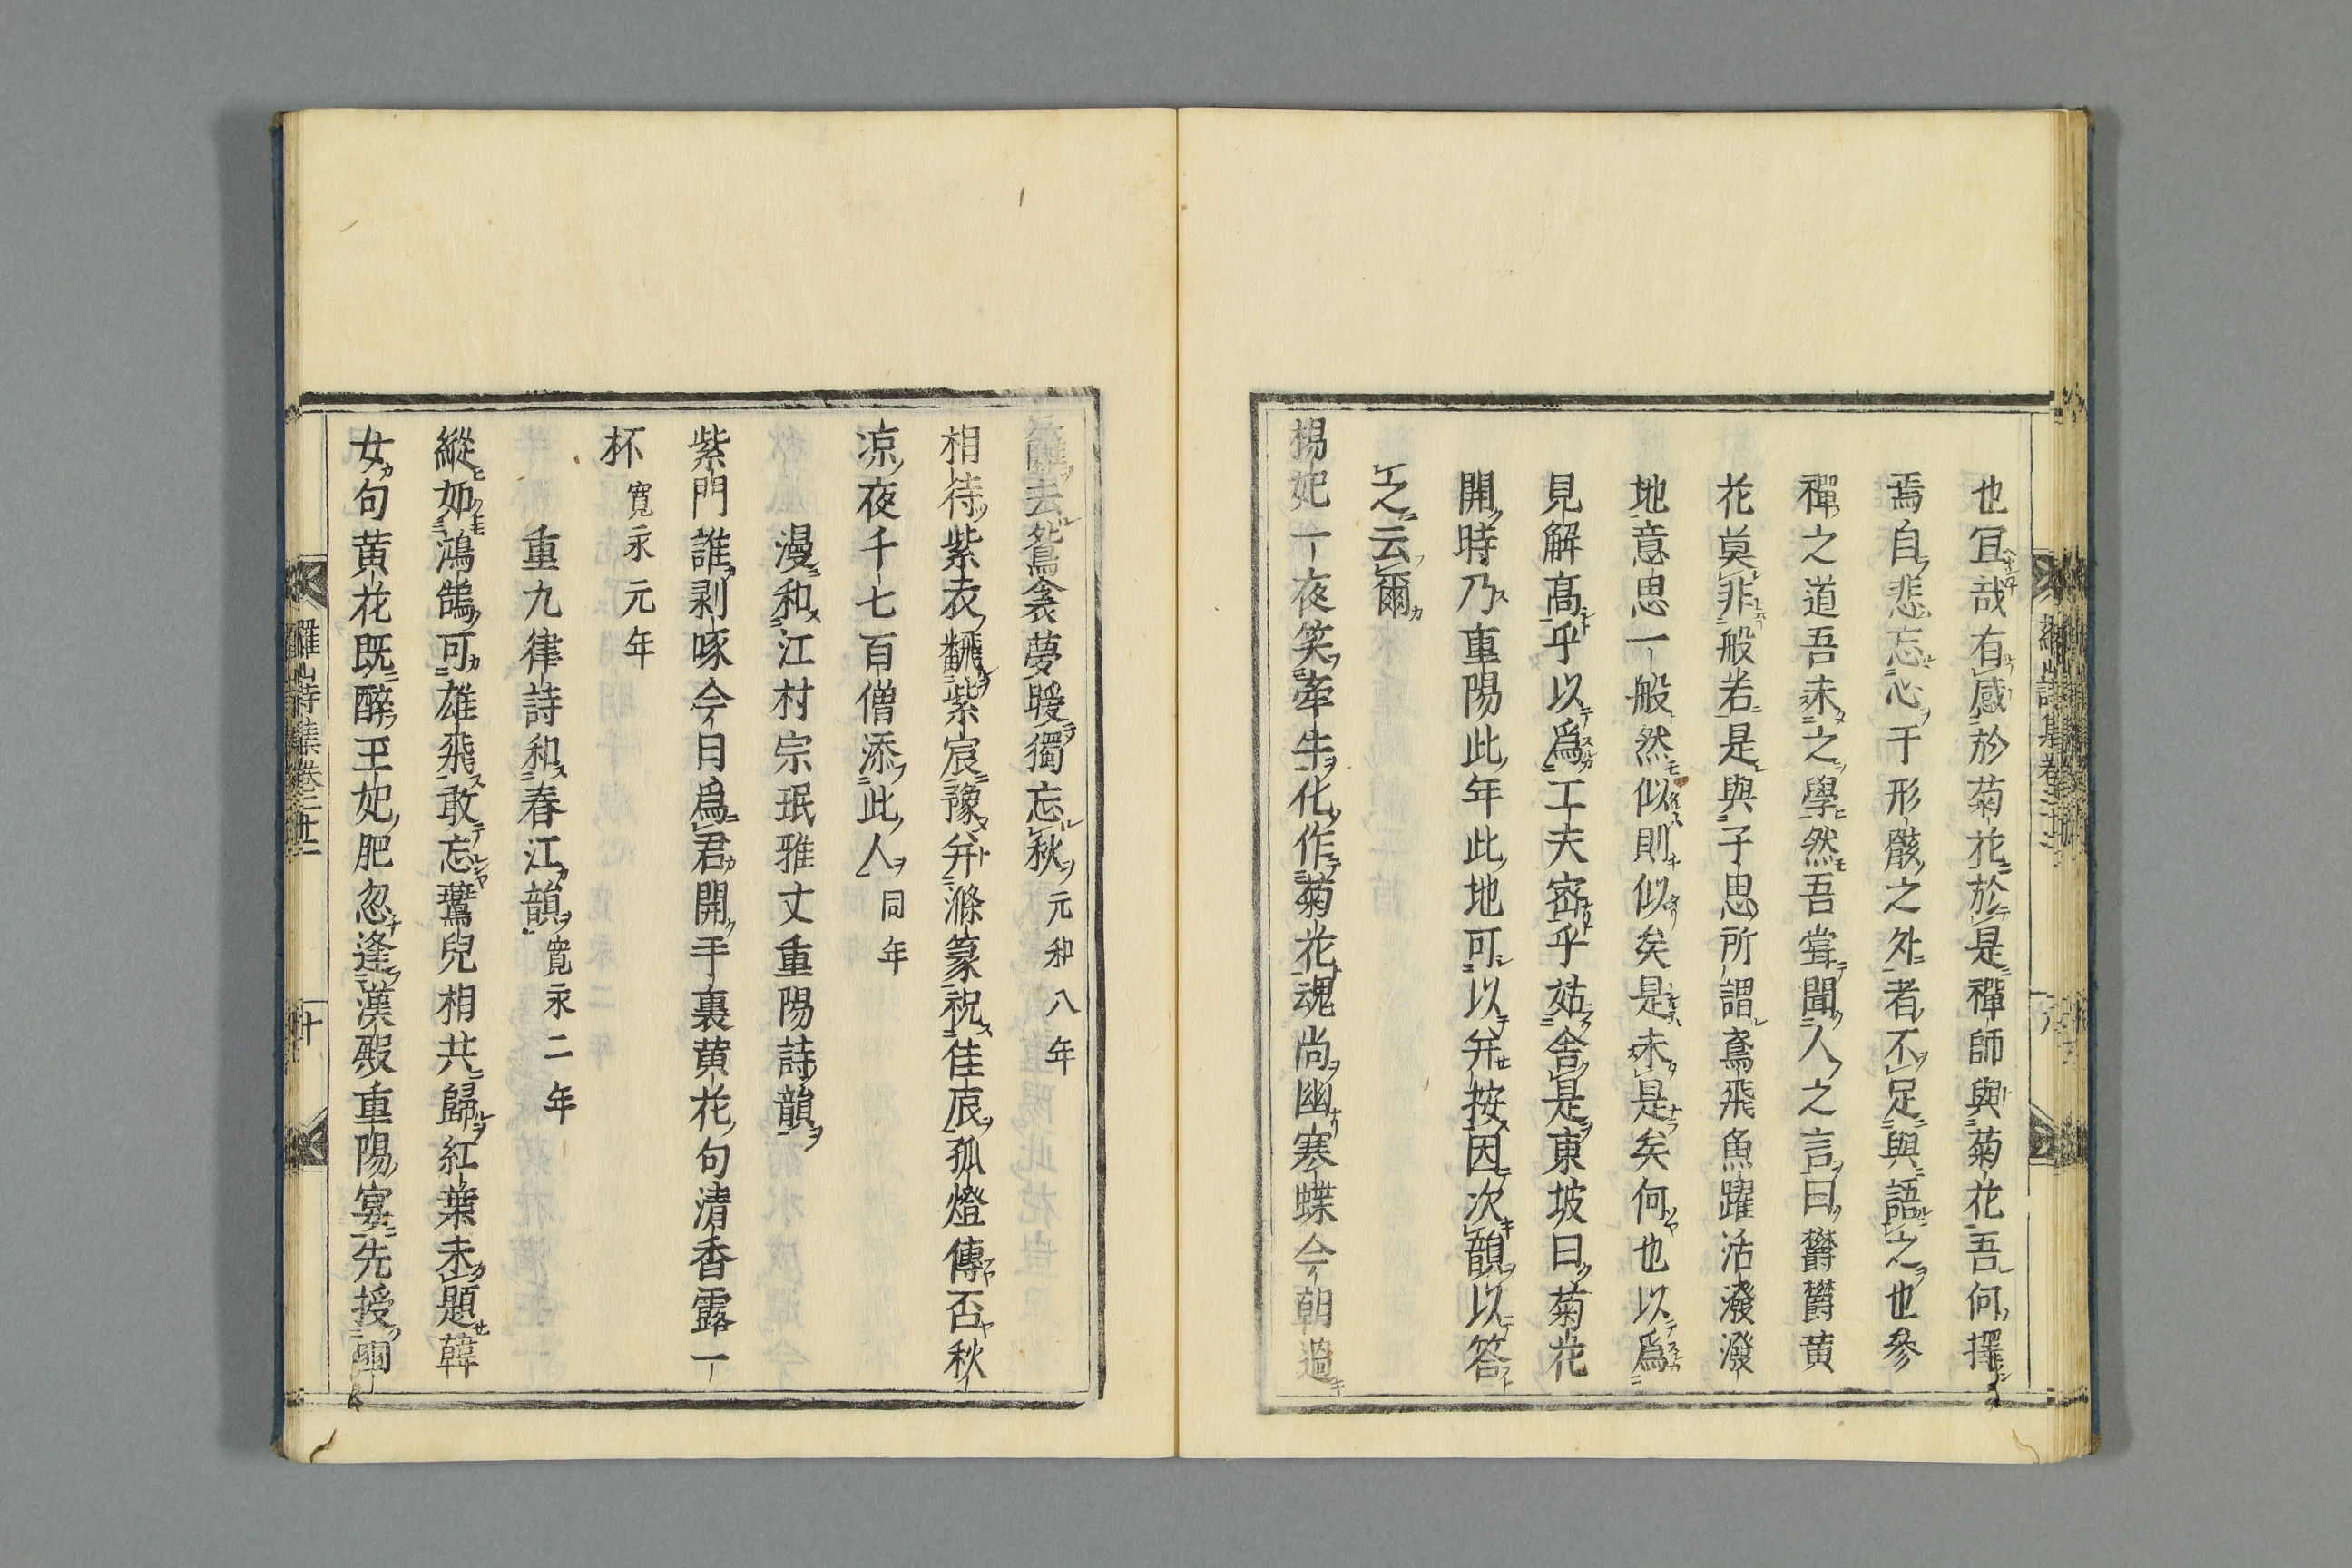 也冝哉有感於菊花於是禪師與菊花吾何擇
焉自悲忘心于形骸之外者不足與語之也參
禪之道吾未之學然吾甞聞人之言曰欝欝黄
花莫非般若是與子思所謂鳶飛魚躍活潑潑
地意思一般然似則似矣是未是矣何也以爲
見解髙乎以爲工夫密乎姑舎是東坡曰菊花
開時乃重陽此年此地可以并按因次韻以答
之云爾
楊妃一夜笑牽牛化作菊花魂尚幽寒蝶今朝過
籬去鴛衾夢暖獨忘秋元和八年
相待紫衣飜紫宸豫并滌篆祝佳辰孤燈傳否秋
凉夜千七百僧添此人同年
漫和江村宗珉雅丈重陽詩韻
紫門誰剥啄今日爲君開手裏黄花句清香露一
杯寛永元年
重九律詩和春江韻寛永二年
縱如鴻鵠可雄飛敢忘鷰兒相共歸紅葉未題韓
女句黄花既醉王妃肥忽逢漢殿重陽宴先授
羅山詩集卷三十二
十